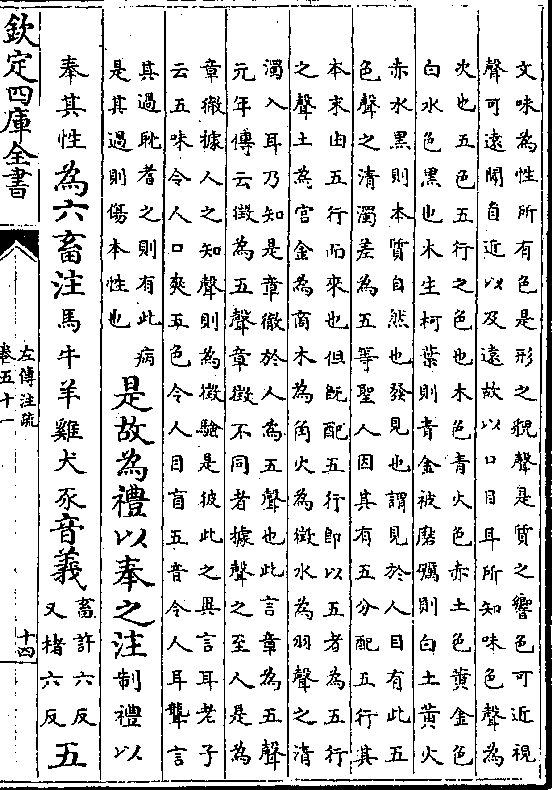 文味為性所有色是形之貌聲是質之響色可近視
聲可遠聞自近以及遠故以口目耳所知味色聲為
次也五色五行之色也木色青火色赤土色黄金色
白水色黑也木生柯葉則青金被磨礪則白土黄火
赤水黑則本質自然也發見也謂見於人目有此五
色聲之清濁差為五等聖人因其有五分配五行其
本末由五行而來也但既配五行即以五者為五行
之聲土為宫金為商木為角火為徵水為羽聲之清
濁入耳乃知是章徹於人為五聲也此言章為五聲
元年傳云徵為五聲章徵不同者據聲之至人是為
章徹據人之知聲則為徵驗是彼此之異言耳老子
云五味令人口爽五色令人目盲五音令人耳聾言
其過耽耆之則有此病
是其過則傷本性也
是故為禮以奉之注制禮以
奉其性為六畜注馬牛羊雞犬豕音義畜許六反
又楮六反五
欽定四庫全書
左傳注疏
卷五十一
十四